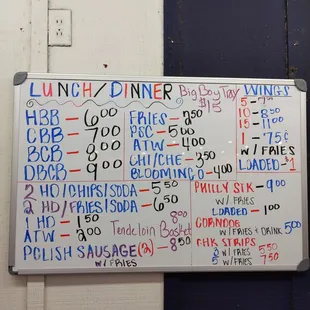 LUNCH/DINNER
Big Boy Tray
$15
HBB - 6.00
CBB - 7.00
BCB - 8.00
DBCB - 9.00
FRIES - 2.50
PSC - 5.00
ATW - 4.00
CHI/CHE - 3.50
BLOOMING O - 4.00
WINGS
5 - 7.00
10 - 8.50
15 - 11.00
1 - 75¢
W/ FRIES
LOADED - $1
2 HD/CHIPS/SODA - 5.50
2 HD/FRIES/SODA - 6.50
1 HD - 1.50
ATW - 2.00
8.00
Tendeloin Basket
POLISH SAUSAGE (2) - 8.50
W/ FRIES
PHILLY STK - 9.00
W/ FRIES
LOADED - 1.00
CORNDOG
W/ FRIES + DRINK 5.00
CHK STRIPS
3 W/ FRIES 5.50
5 W/ FRIES 7.50